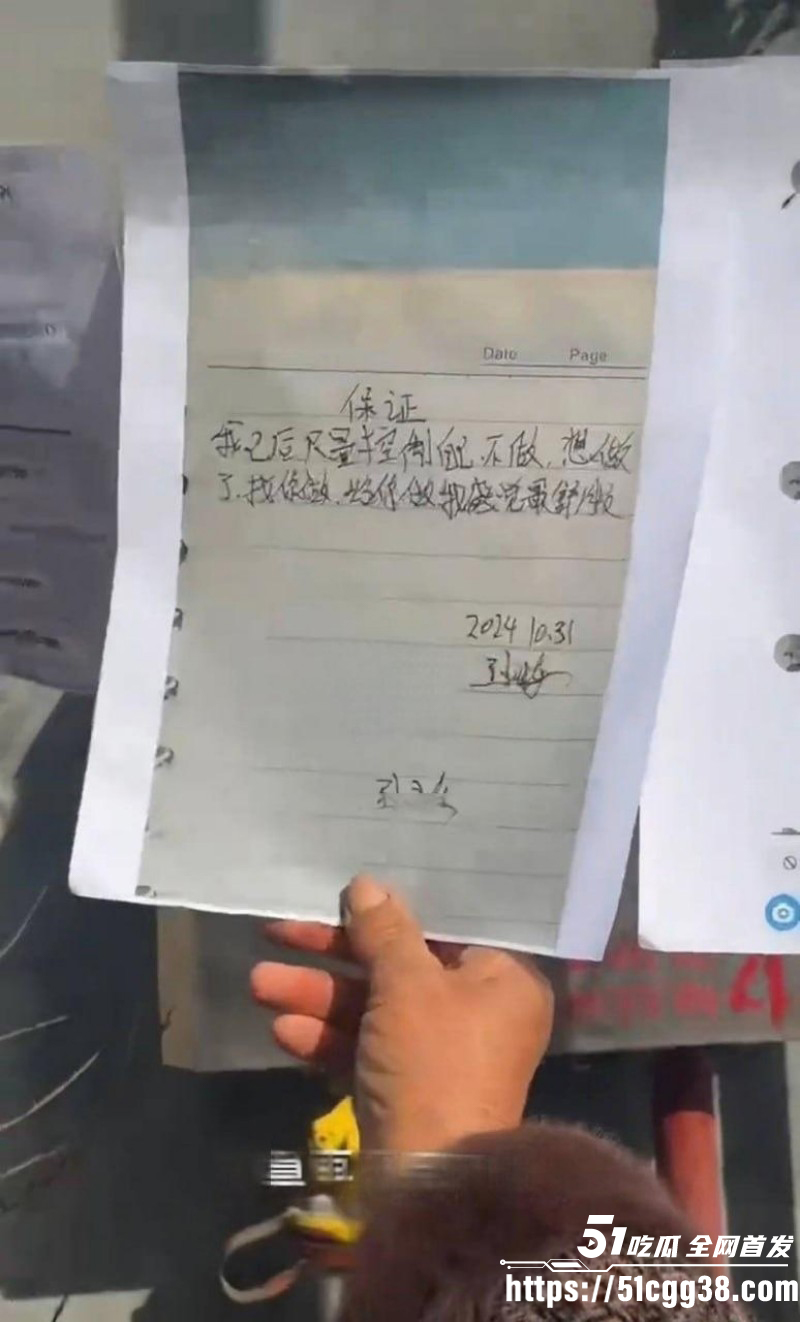 Date Page
保证
我已后尽量控制自己.不做.想做
了.找你做.给你做我感觉最舒服
2024 10.31
51吃瓜 全网首发
https://51cgg38.com